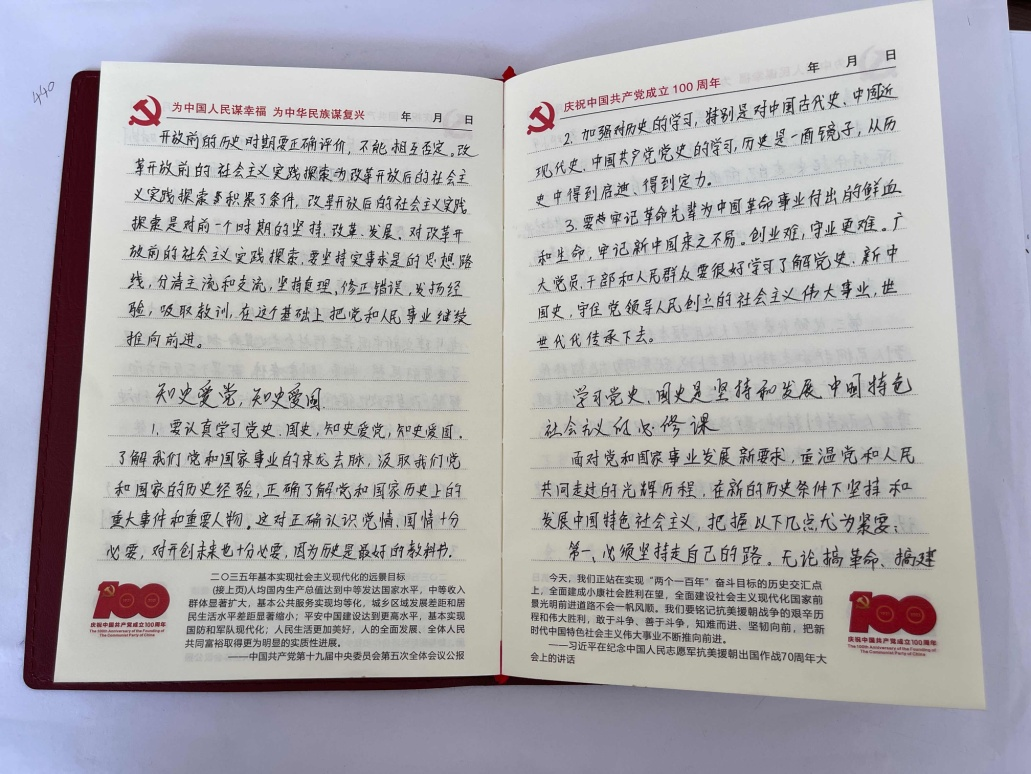 440
为中国人民谋幸福 为中华民族谋复兴 年 月 日
开放前的历史时期要正确评价,不能相互否定。改
革开放前的社会主义实践探索为改革开放后的社会主
义实践探索积累了条件,改革开放后的社会主义实践
探索是对前一个时期的坚持、改革、发展。对改革开
放前的社会主义实践探索,要坚持实事求是的思想路
线,分清主流和支流,坚持真理、修正错误,发扬经
验,吸取教训,在这个基础上把党和人民事业继续
推向前进。
知史爱党,知史爱国
1、要认真学习党史、国史,知史爱党,知史爱国。
了解我们党和国家事业的来龙去脉,汲取我们党
和国家的历史经验,正确了解党和国家历史上的
重大事件和重要人物。这对正确认识党情、国情十分
必要,对开创未来也十分必要,因为历史是最好的教科书。
100
庆祝中国共产党成立100周年
The 100th Anniversary of the Founding of
The Communist Party of China
二〇三五年基本实现社会主义现代化的远景目标
(接上页)人均国内生产总值达到中等发达国家水平,中等收入
群体显著扩大,基本公共服务实现均等化,城乡区域发展差距和居
民生活水平差距显著缩小;平安中国建设达到更高水平,基本实现
国防和军队现代化;人民生活更加美好,人的全面发展、全体人民
共同富裕取得更为明显的实质性进展。
——中国共产党第十九届中央委员会第五次全体会议公报
庆祝中国共产党成立100周年 年 月 日
2、加强对历史的学习,特别是对中国古代史、中国近
现代史、中国共产党党史的学习,历史是一面镜子,从历
史中得到启迪、得到定力。
3、要牢记革命先辈为中国革命事业付出的鲜血
和生命,牢记新中国来之不易。创业难,守业更难。广
大党员、干部和人民群众要很好学习了解党史、新中
国史,守住党领导人民创立的社会主义伟大事业,世
世代代传承下去。
学习党史、国史是坚持和发展中国特色
社会主义的必修课
面对党和国家事业发展新要求,重温党和人民
共同走过的光辉历程,在新的历史条件下坚持和
发展中国特色社会主义,把握以下几点尤为紧要:
第一、必须坚持走自己的路。无论搞革命、搞建
今天,我们正站在实现“两个一百年”奋斗目标的历史交汇点
上,全面建成小康社会胜利在望,全面建设社会主义现代化国家前
景光明前进道路不会一帆风顺。我们要铭记抗美援朝战争的艰辛历
程和伟大胜利,敢于斗争、善于斗争,知难而进、坚韧向前,把新
时代中国特色社会主义伟大事业不断推向前进。
——习近平在纪念中国人民志愿军抗美援朝出国作战70周年大
会上的讲话
100
庆祝中国共产党成立100周年
The 100th Anniversary of the Founding of
The Communist Party of China